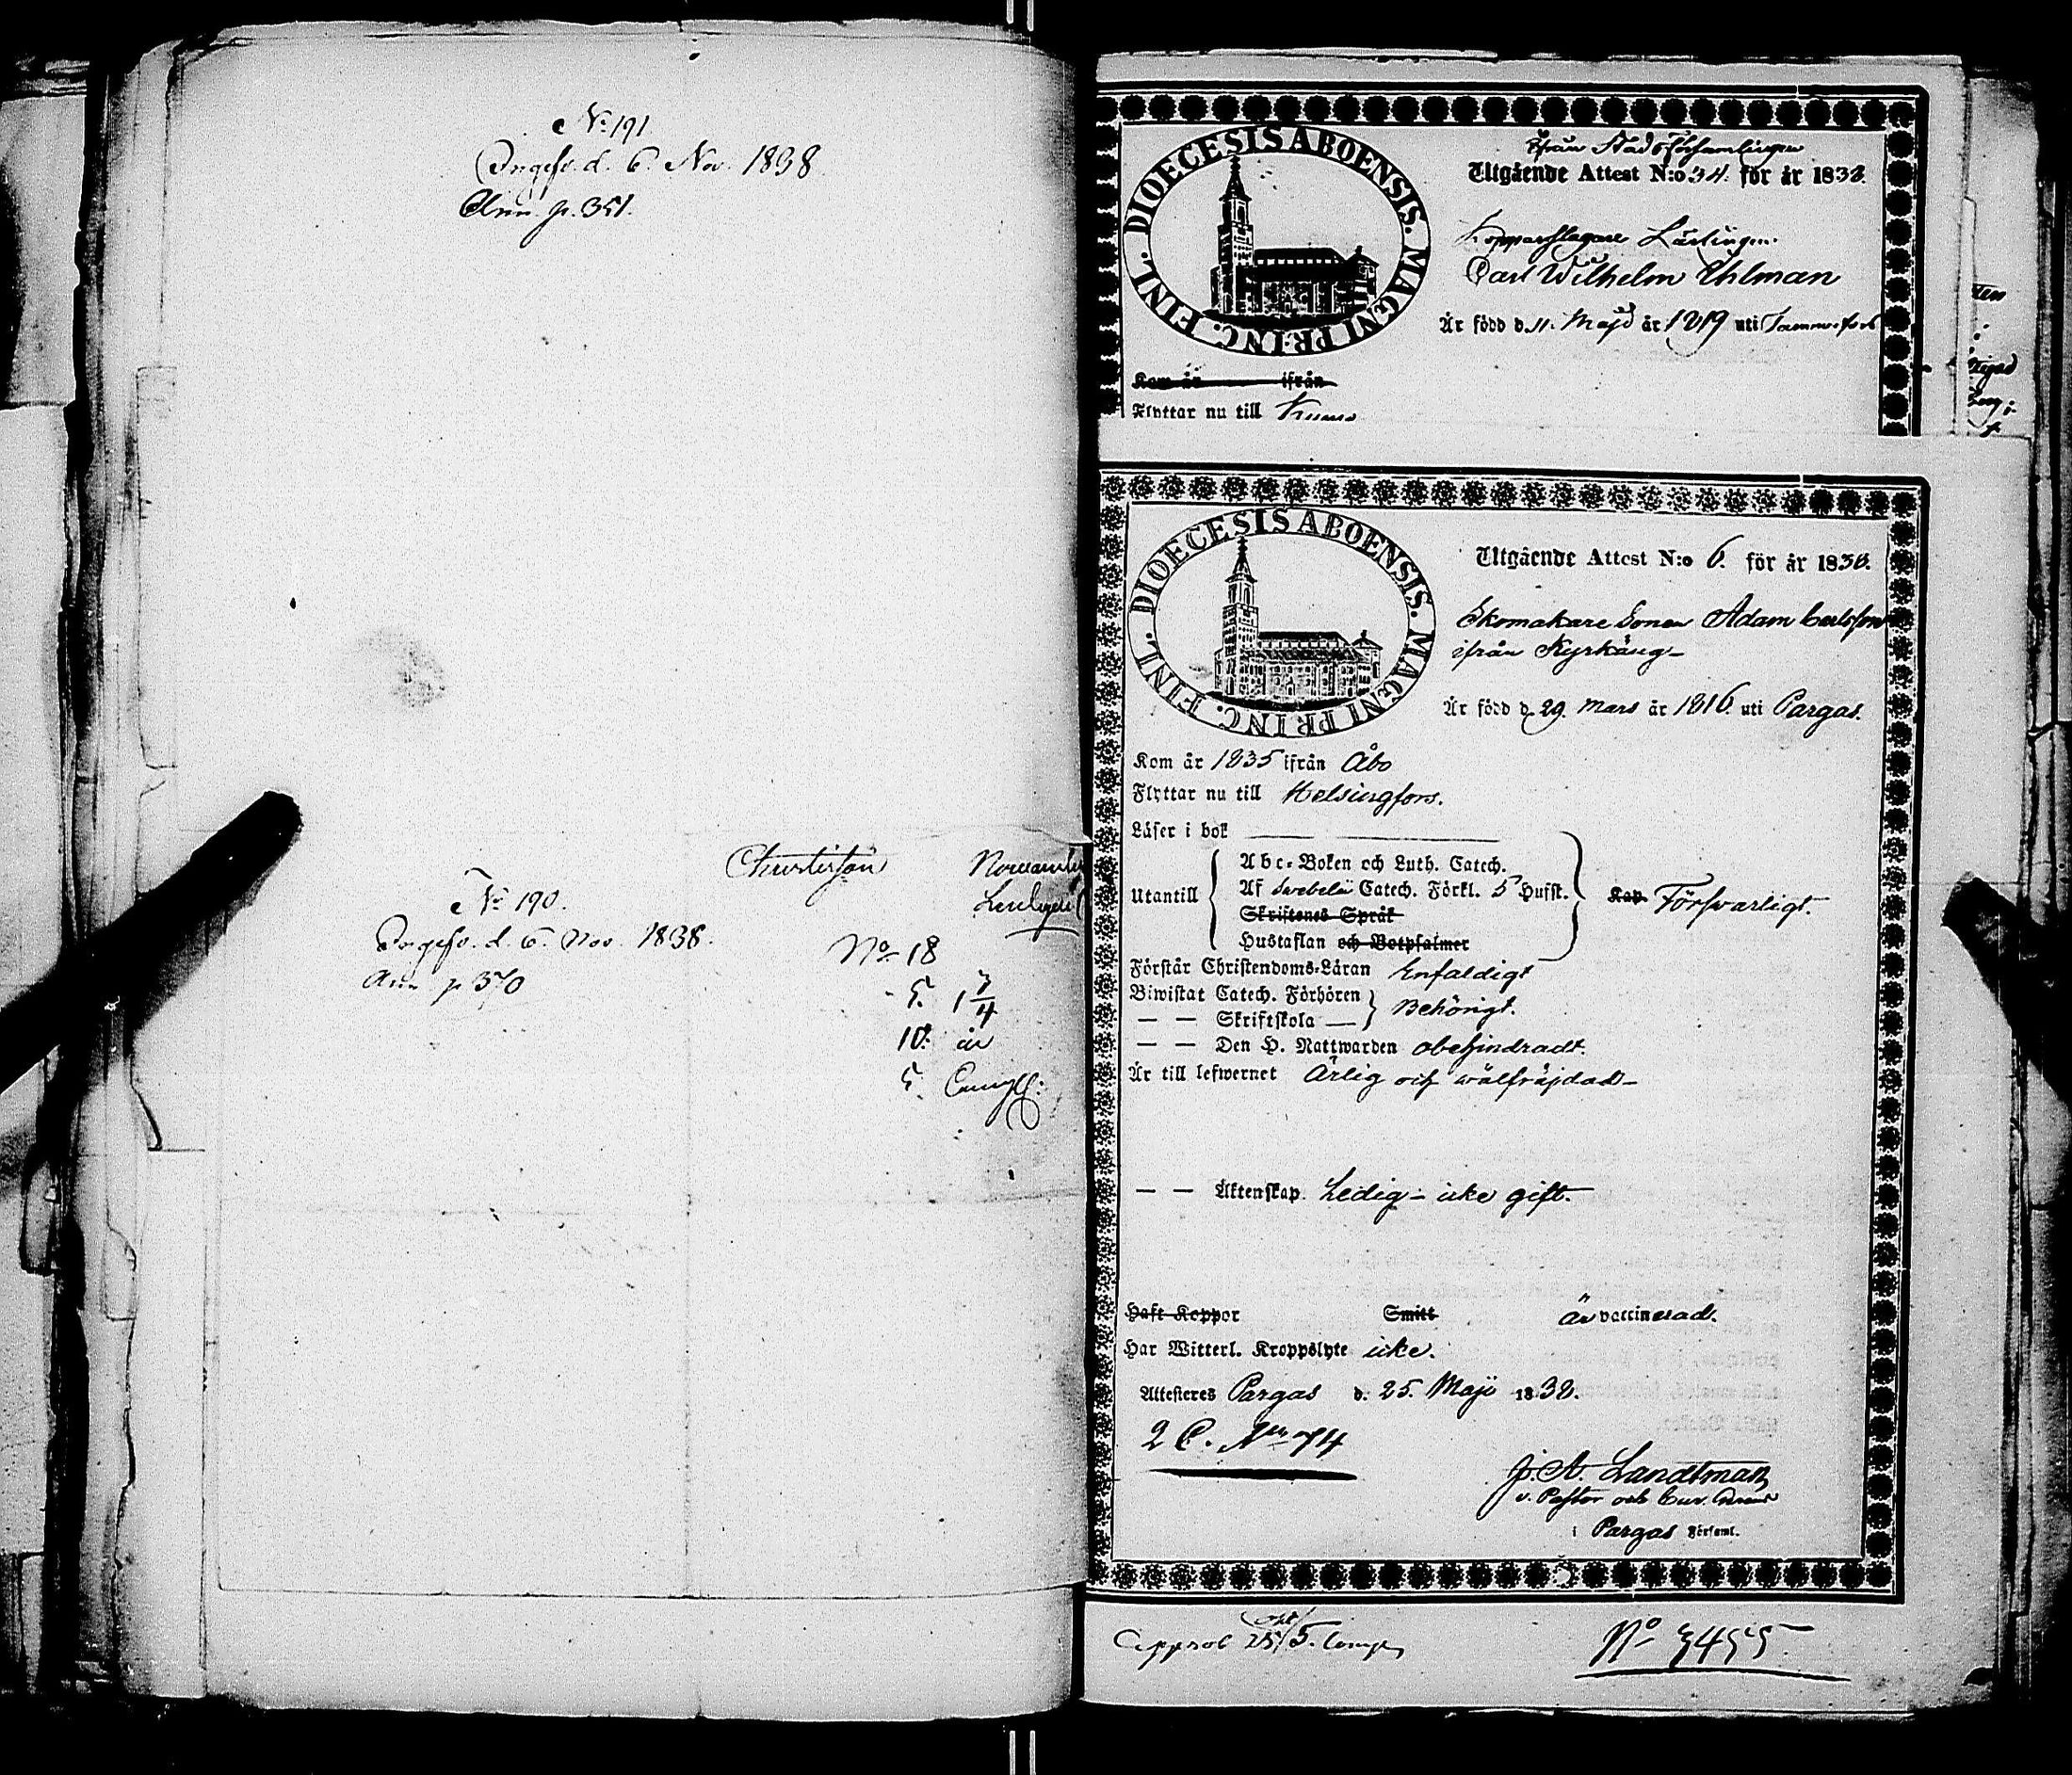 No 191
d. 6 Nov. 1838
p. 351.
Christersson
No 190.
d. 6. Nov. 1838.
p 370
No 18
5. 1 3/4
10. år
5
DIOECESIS ABOENSIS. MAGNI PRINC. FINL.
ifrån Stadsförsamlingen
Utgående Attest N:o 34. för år 1838.
Kopparslagare Lärlingen
Carl Wilhelm Uhlman
Är född d. 11. Maji år 1819 uti Tammerfors
Kom år ifrån
Flyttar nu till Kumo
DIOECESIS ABOENSIS. MAGNI PRINC. FINL.
Utgående Attest N:o 6. för år 1838.
Skomakare Sonen Adam Carlsson
ifrån Kyrkäng
Är född d. 29. Mars år 1816. uti Pargas.
Kom år 1835 ifrån Åbo
Flyttar nu till Helsingfors.
Läser i bok
Utantill
Abc-Boken och Luth. Catech.
Af Swebelii Catech. Förkl. 5 Hufst.
Skriftenes Språk
Hustaflan och Botpsalmer
Kap. Förswarligt.
Förstår Christendoms-Läran Enfaldigt
Biwistat Catech. Förhören
— — Skriftskola — Behörigt.
— — Den H. Nattwarden obehindradt.
Är till lefwernet Ärlig och wälfräjdad
— — Äktenskap. Ledig - icke gift.
Haft Koppor Smitt är vaccinerad.
Har Witterl. Kroppslyte icke.
Attesteres Pargas d. 25. Maji 1838.
2 C. 74
J. A. Landtman
v. Pastor och Cur.
i Pargas Församl.
Approb 25/5.
No 3455